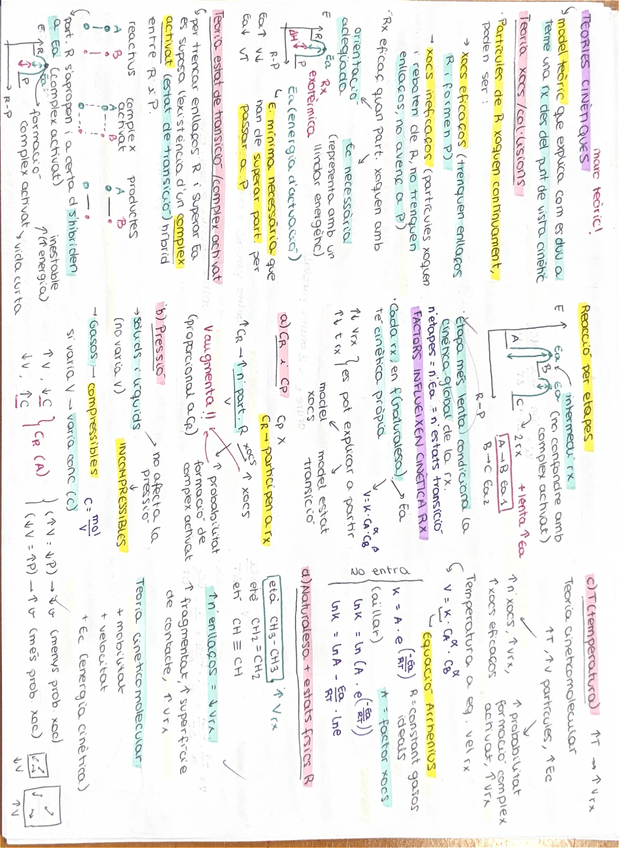 marc teòric!
TEORIES CINÈTIQUES
model teòric que explica com es duu a
terme una rx des del punt de vista cinètic
Teoria xocs / col·lisions
Partícules de R xoquen contínuament,
poden ser:
→ xocs eficaços (trenquen enllaços
R i formen P)
→ xocs ineficaços (partícules xoquen
i reboten de R, no trenquen
enllaços, no avenç a P)
Rx eficaç quan part. xoquen amb
orientació
adequada
Ec necessària
(representa amb un
llindar energètic)
E
R
ΔH
Ea
P
Rx
exotèrmica
R-P
Ea (energia d'activació)
Ea↑ v↓
Ea↓ v↑
E. mínima necessària que
han de superar part. per
passar a P
Teoria estat de transició / complex activat
per trencar enllaços R i superar Ea
es suposa l'existència d'un complex
activat (estat de transició) híbrid
entre R i P.
A
B
A
B
reactius complex productes
activat
part R s'apropen i a certa d s'hibriden
a Ea (complex activat)
E
R
Ea
P
R-P
formació
complex activat
inestable
(↑energia)
vida curta
Reacció per etapes
E
intermedi rx
Ea Ea (no confondre amb
complex activat)
A
B
C
R-P
2 rx + lenta ↑Ea
A→B Ea1
B→C Ea2
Etapa més lenta condiciona la
cinètica global de la rx
n'etapes = n'Ea = n'estats transició
FACTORS INFLUEIXEN CINÈTICA RX
Cada rx en f(naturalesa)
té cinètica pròpia
Ea
v = K·CA^α·CB^β
↑↓ v rx
↑↓ t rx
es pot explicar a partir
model
xocs
model estat
transició
a) CR i CP
CP X
CR → participen a rx
↑CR → ↑ n part. R
V
xocs
↑ xocs
V augmenta!!
(proporcional a CR)
↑ probabilitat
formació de
complex activat
b) Pressió
→ sòlids i líquids
(no varia V)
no afecta la
pressió
INCOMPRESSIBLES
→ Gasos → compressibles
C = mol/V
si varia V → varia conc (C)
↑V, ↓C
↓V, ↑C
CR (A)
(↑V = ↓P) → ↓v (menys prob xoc)
(↓V = ↑P) → ↑v (més prob xoc)
↓V
↑V
c) T (temperatura) ↑T → ↑V rx
Teoria cinetomolecular
↑T, ↑v partícules, ↑Ec
↑n xocs, ↑Vrx,
↑xocs eficaços
↑probabilitat
formació complex
activat, ↑Vrx
Temperatura a eq. vel rx
v = K·CA^α·CB^β
Equació Arrhenius
K = A·e^(-Ea/RT)
R = constant gasos
ideals
(aïllar)
A = factor xocs
lnK = ln(A·e^(-Ea/RT))
lnK = lnA - Ea/RT · lne
No entra
d) Naturalesa + estats físics R
età CH3-CH3 ↑Vrx
etè CH2=CH2
etí CH≡CH
↑n enllaços = ↓Vrx
↑ fragmentat, ↑superfície
de contacte, ↑Vrx
Teoria cineticomolecular
+ mobilitat
+ velocitat
+ Ec (energia cinètica)